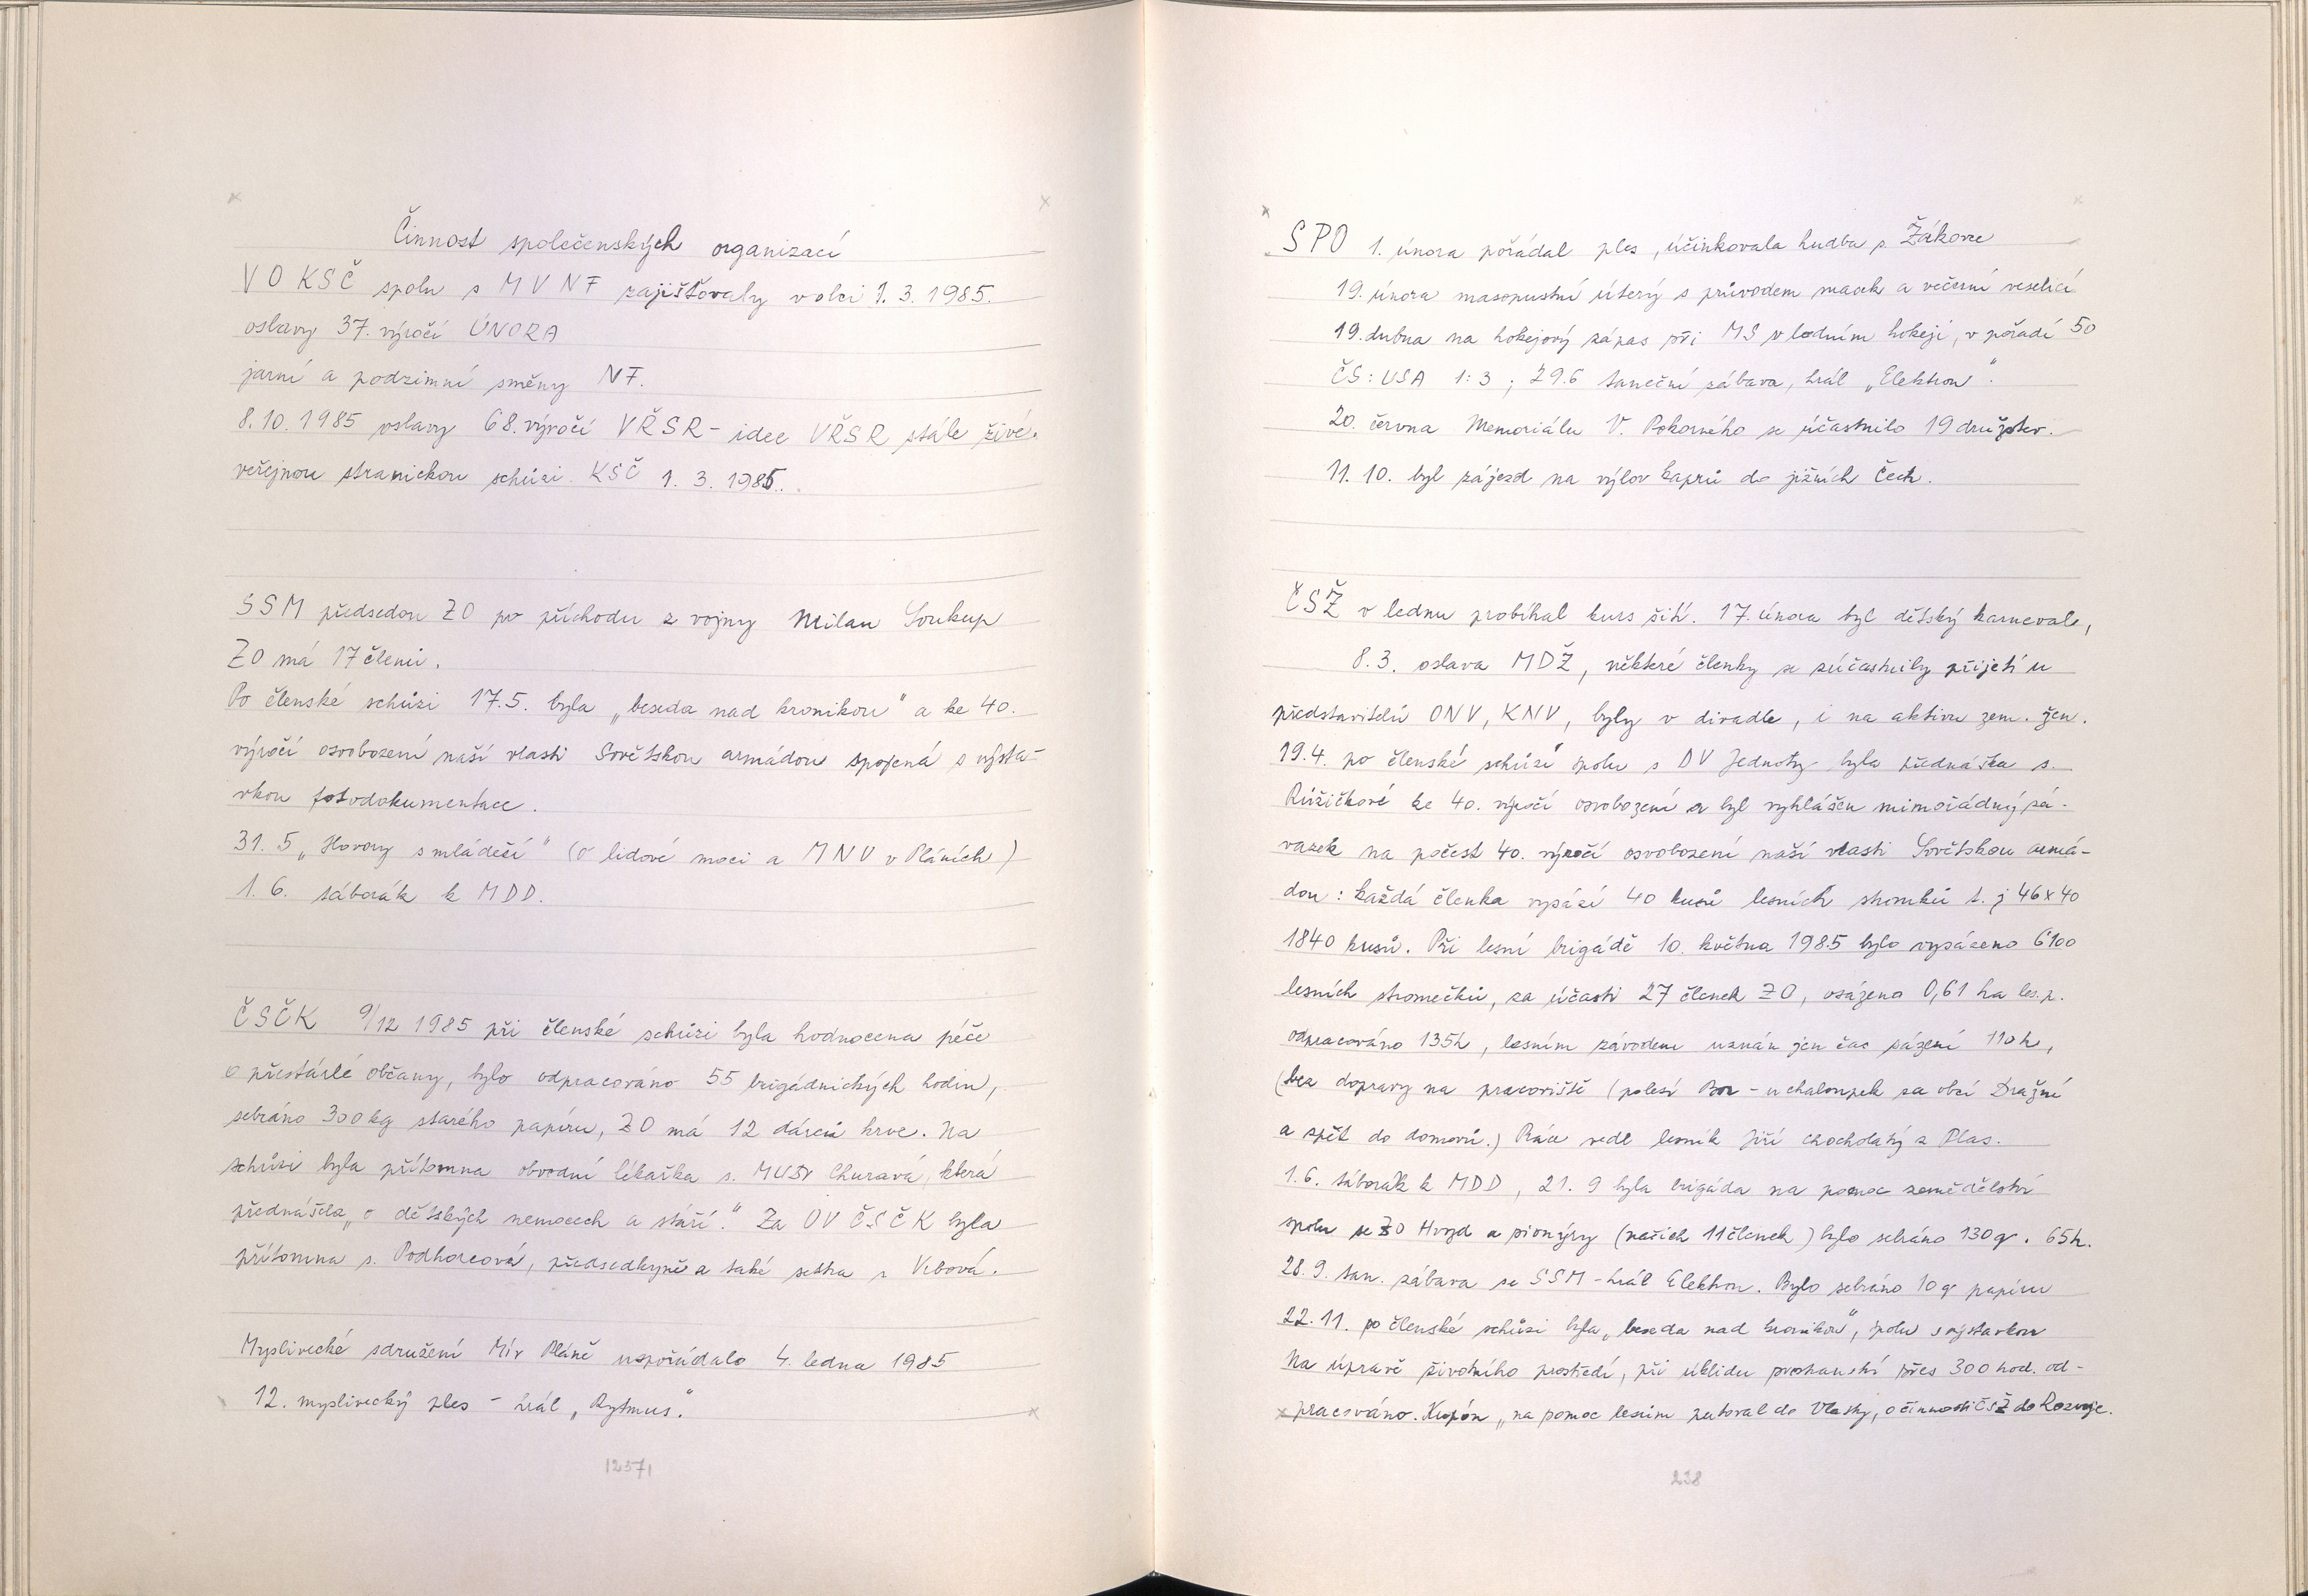 Činnost společenských organizací
VO KSČ spolu s MV NF zajišťovaly v obci 1. 3. 1985.
oslavy 37. výročí ÚNORA
jarní a podzimní směny NF.
8. 10. 1985 oslavy 68. výročí VŘSR - idee VŘSR stále živé.
veřejnou stranickou schůzi KSČ 1. 3. 1985.
SSM předsedou ZO po příchodu z vojny Milan Soukup
ZO má 17 členů.
Po členské schůzi 17.5. byla „beseda nad kronikou" a ke 40.
výročí osvobození naší vlasti Sovětskou armádou spojená s výsta-
vkou fotodokumentace.
31. 5 „Hovory s mládeží" (O lidové moci a MNV v Pláních)
1. 6. táborák k MDD.
ČSČK 9/12 1985 při členské schůzi byla hodnocena péče
o přestárlé občany, bylo odpracováno 55 brigádnických hodin,
sebráno 300 kg starého papíru, ZO má 12 dárců krve. Na
schůzi byla přítomna obvodní lékařka s. MUDr Churavá, která
přednášela „o dětských nemocech a stáří." Za OV ČSČK byla
přítomna s. Podhorcová, předsedkyně a také sestra s Vrbová.
Myslivecké sdružení Mír Pláně uspořádalo 4. ledna 1985
12. myslivecký ples - hrál „Rytmus".
12371
SPO 1. února pořádal ples, účinkovala hudba s Žákovce
19. února masopustní úterý s průvodem masek a večerní veselicí
19. dubna na hokejový zápas při MS v ledním hokeji, v pořadí 50
ČS : USA 1 : 3 ; 29.6 taneční zábava, hrál „Elektron".
20. června Memoriálu V. Pokorného se účastnilo 19 družstev.
11. 10. byl zájezd na výlov kaprů do jižních Čech.
ČSŽ v lednu probíhal kurs šití. 17. února byl dětský karneval,
8. 3. oslava MDŽ, některé členky se zúčastnily přijetí u
představitelů ONV, KNV, byly v divadle, i na aktivu zem. žen.
19.4. po členské schůzi spolu s DV Jednoty byla přednáška s.
Růžičkové ke 40. výročí osvobození a byl vyhlášen mimořádný zá-
vazek na počest 40. výročí osvobození naší vlasti Sovětskou armá-
dou : každá členka vysází 40 kusů lesních stromků t. j 46 x 40
1840 kusů. Při lesní brigádě 10. května 1985 bylo vysázeno 6100
lesních stromečků, za účasti 27 členek ZO, osázeno 0,61 ha les. p.
odpracováno 135h, lesním závodem uznán jen čas sázení 110 h,
(bez dopravy na pracoviště (polesí Bor - u chaloupek za obcí Dražní
a zpět do domovů.) Práce vedl lesník Jiří Chocholatý z Plas.
1.6. táborák k MDD, 21. 9 byla brigáda na pomoc zemědělství
spolu se ZO Hvozd a pionýry (našich 11 členek) bylo sebráno 130 q. 65h.
28. 9. tan. zábava se SSM - hrál Elektron. Bylo sebráno 10 q papíru
22. 11. po členské schůzi byla „beseda nad kronikou", spolu s výstavkou
Na úpravě životního prostředí, při úklidu prostranství přes 300 hod. od-
pracováno. Kupón „na pomoc lesům putoval do Vlasty, o činnosti ČSŽ do Rozvoje.
238